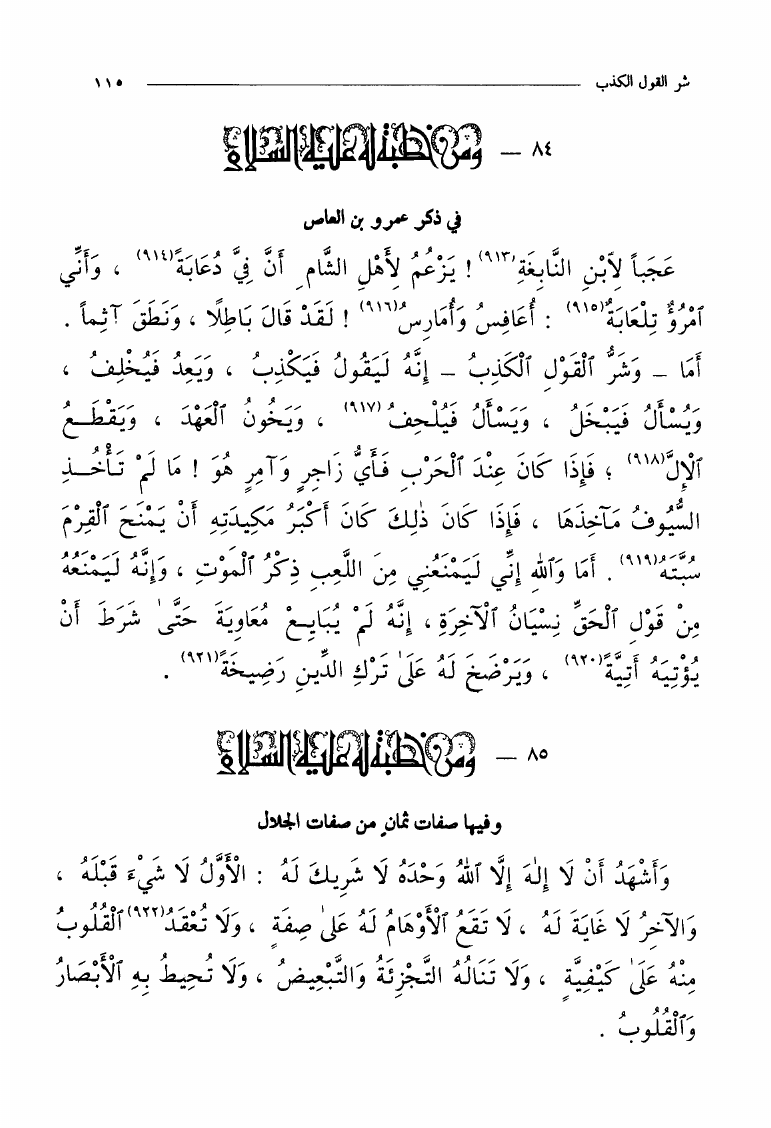 شر القول الكذب ١١٥
٨٤ – ومن خطبة له عليه السلام
في ذكر عمرو بن العاص
عَجَباً لِاَبْنِ النَّابِغَةِ(٩١٣) ! يَزْعُمُ لِأَهْلِ الشَّامِ أَنَّ فِيَّ دُعَابَةً(٩١٤) ، وَأَنِّي
ٱمْرُؤٌ تِلْعَابَةٌ(٩١٥) : أُعَافِسُ وَأُمَارِسُ(٩١٦) ! لَقَدْ قَالَ بَاطِلًا ، وَنَطَقَ آثِماً .
أَمَا – وَشَرُّ ٱلْقَوْلِ ٱلْكَذِبُ – إِنَّهُ لَيَقُولُ فَيَكْذِبُ ، وَيَعِدُ فَيُخْلِفُ ،
وَيُسْأَلُ فَيَبْخَلُ ، وَيَسْأَلُ فَيُلْحِفُ(٩١٧) ، وَيَخُونُ ٱلْعَهْدَ ، وَيَقْطَعُ
ٱلْإِلَّ(٩١٨) ؛ فَإِذَا كَانَ عِنْدَ ٱلْحَرْبِ فَأَيُّ زَاجِرٍ وَآمِرٍ هُوَ ! مَا لَمْ تَأْخُذِ
السُّيُوفُ مَآخِذَهَا ، فَإِذَا كَانَ ذٰلِكَ كَانَ أَكْبَرُ مَكِيدَتِهِ أَنْ يَمْنَحَ ٱلْقِرْمَ
سُبَّتَهُ(٩١٩) . أَمَا وَٱللهِ إِنِّي لَيَمْنَعُنِي مِنَ اللَّعِبِ ذِكْرُ ٱلْمَوْتِ ، وَإِنَّهُ لَيَمْنَعُهُ
مِنْ قَوْلِ ٱلْحَقِّ نِسْيَانُ ٱلْآخِرَةِ ، إِنَّهُ لَمْ يُبَايِعْ مُعَاوِيَةَ حَتَّىٰ شَرَطَ أَنْ
يُؤْتِيَهُ أَتِيَّةً(٩٢٠) ، وَيَرْضَخَ لَهُ عَلَىٰ تَرْكِ الدِّينِ رَضِيخَةً(٩٢١) .
٨٥ – ومن خطبة له عليه السلام
وفيها صفات ثمانٍ من صفات الجلال
وَأَشْهَدُ أَنْ لَا إِلٰهَ إِلَّا ٱللهُ وَحْدَهُ لَا شَرِيكَ لَهُ : الْأَوَّلُ لَا شَيْءَ قَبْلَهُ ،
وَالآخِرُ لَا غَايَةَ لَهُ ، لَا تَقَعُ ٱلْأَوْهَامُ لَهُ عَلَىٰ صِفَةٍ ، وَلَا تُعْقَدُ(٩٢٢) ٱلْقُلُوبُ
مِنْهُ عَلَىٰ كَيْفِيَّةٍ ، وَلَا تَنَالُهُ التَّجْزِئَةُ وَالتَّبْعِيضُ ، وَلَا تُحِيطُ بِهِ ٱلْأَبْصَارُ
وَٱلْقُلُوبُ .